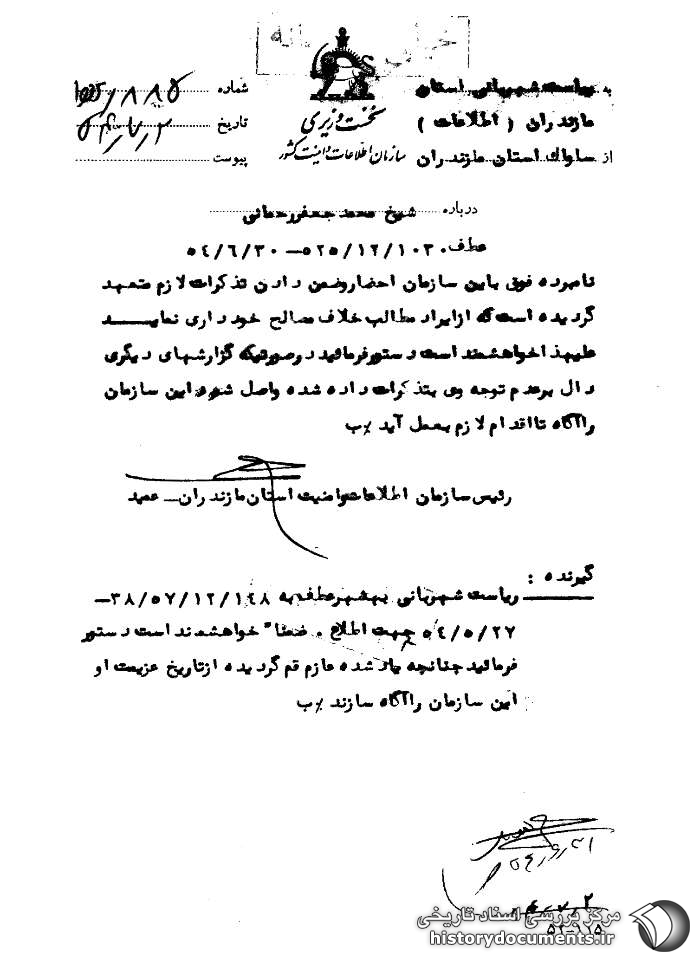 خیلی محرمانه
به ریاست شهربانی استان
مازندران ( اطلاعات )
از ساواک استان مازندران
نخست وزیری
سازمان اطلاعات و امنیت کشور
شماره
تاریخ
پیوست
درباره شیخ محمد جعفر رحمانی
عطف ۵۲۵/۱۲/۱۰۳۰ – ۵۴/۶/۳۰
نامبرده فوق باین سازمان احضار وضمن دادن تذکرات لازم متعهد
گردیده است که از ایراد مطالب خلاف مصالح خودداری نماید
علیهذا خواهشمند است دستور فرمائید درصورتیکه گزارشهای دیگری
دال برعدم توجه وی بتذکرات داده شده واصل شود این سازمان
راآگاه تا اقدام لازم بعمل آید ٪ب
رئیس سازمان اطلاعات وامنیت استان مازندران – عمید
گیرنده :
ریاست شهربانی بهشهر عطف به ۳۸/۵۷/۱۲/۱۴۸ –
۵۴/۵/۲۷ جهت اطلاع . ضمنا" خواهشمند است دستور
فرمائید چنانچه یاد شده عازم قم گردیده از تاریخ عزیمت او
این سازمان راآگاه سازند ٪ب
مرکز بررسی اسناد تاریخی
historydocuments.ir